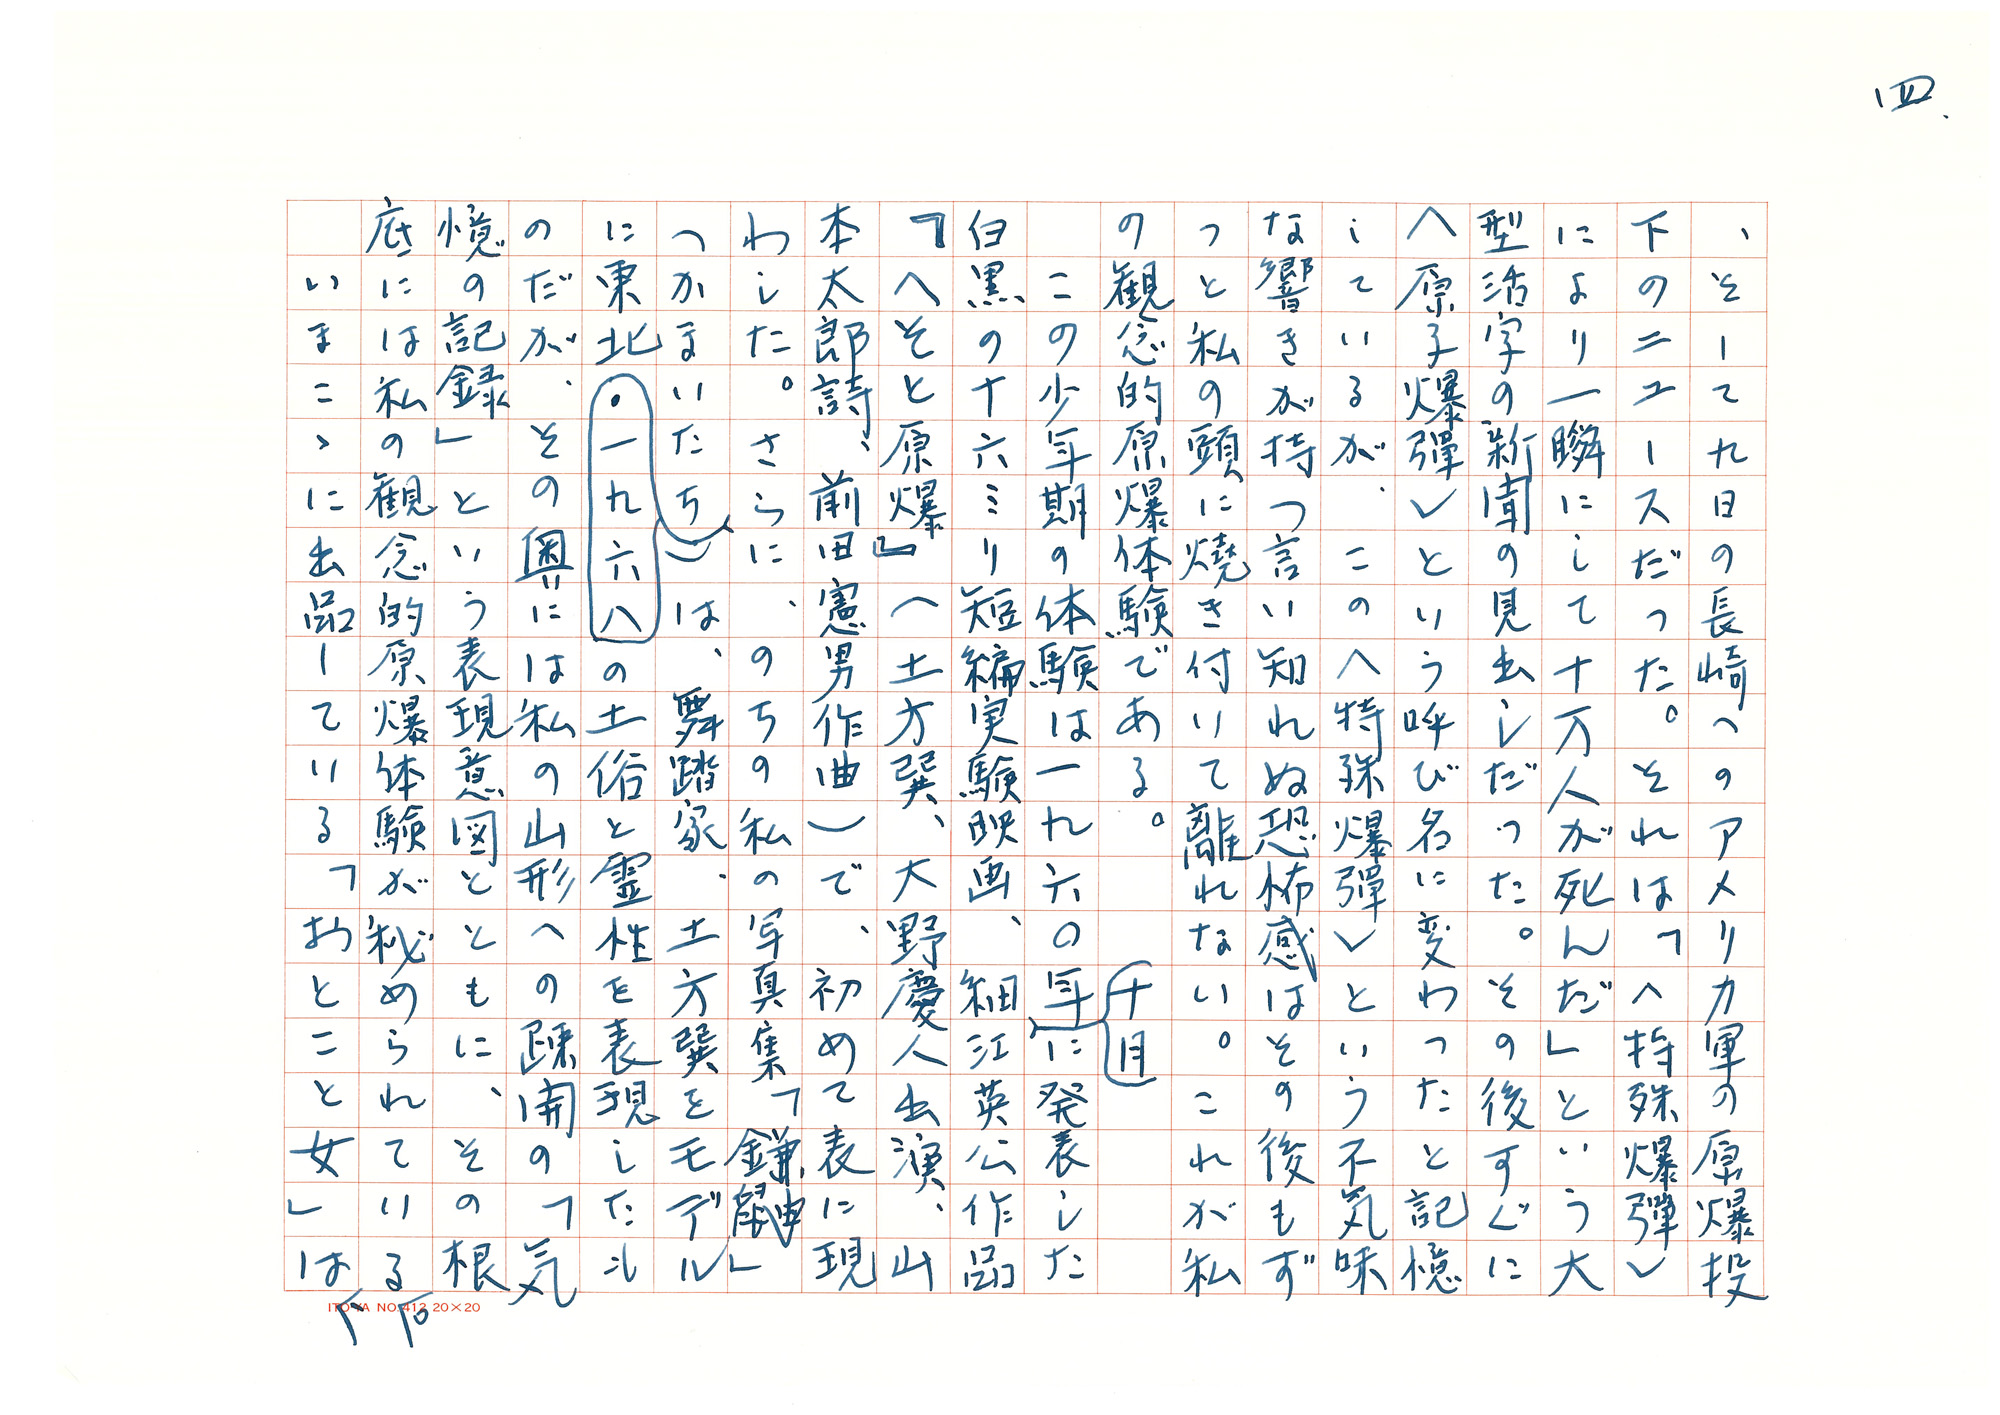 四.
、そして九日の長崎へのアメリカ軍の原爆投
下のニュースだった。それは「〈特殊爆弾〉
により一瞬にして十万人が死んだ」という大
型活字の新聞の見出しだった。その後すぐに
〈原子爆弾〉という呼び名に変わったと記憶
しているが、この〈特殊爆弾〉という不気味
な響きが持つ言い知れぬ恐怖感はその後もず
っと私の頭に焼き付いて離れない。これが私
の観念的原爆体験である。
十月
この少年期の体験は一九六〇年に発表した
白黒の十六ミリ短編実験映画、細江英公作品
『へそと原爆』(土方巽、大野慶人出演、山
本太郎詩、前田憲男作曲)で、初めて表に現
わした。さらに、のちの私の写真集「鎌鼬」
(かまいたち)は、舞踏家、土方巽をモデル
に東北・一九六八の土俗と霊性を表現した
のだが、その奥には私の山形への疎開の「気
憶の記録」という表現意図とともに、その根
底には私の観念的原爆体験が秘められている。
いまこゝに出品している「おとこと女」は、
ITO-YA NO.412 20×20